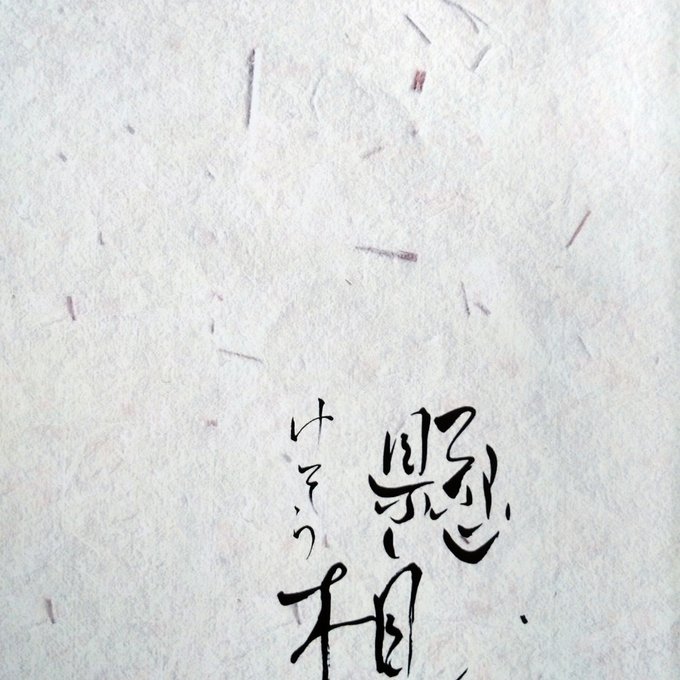 懸想
けそう